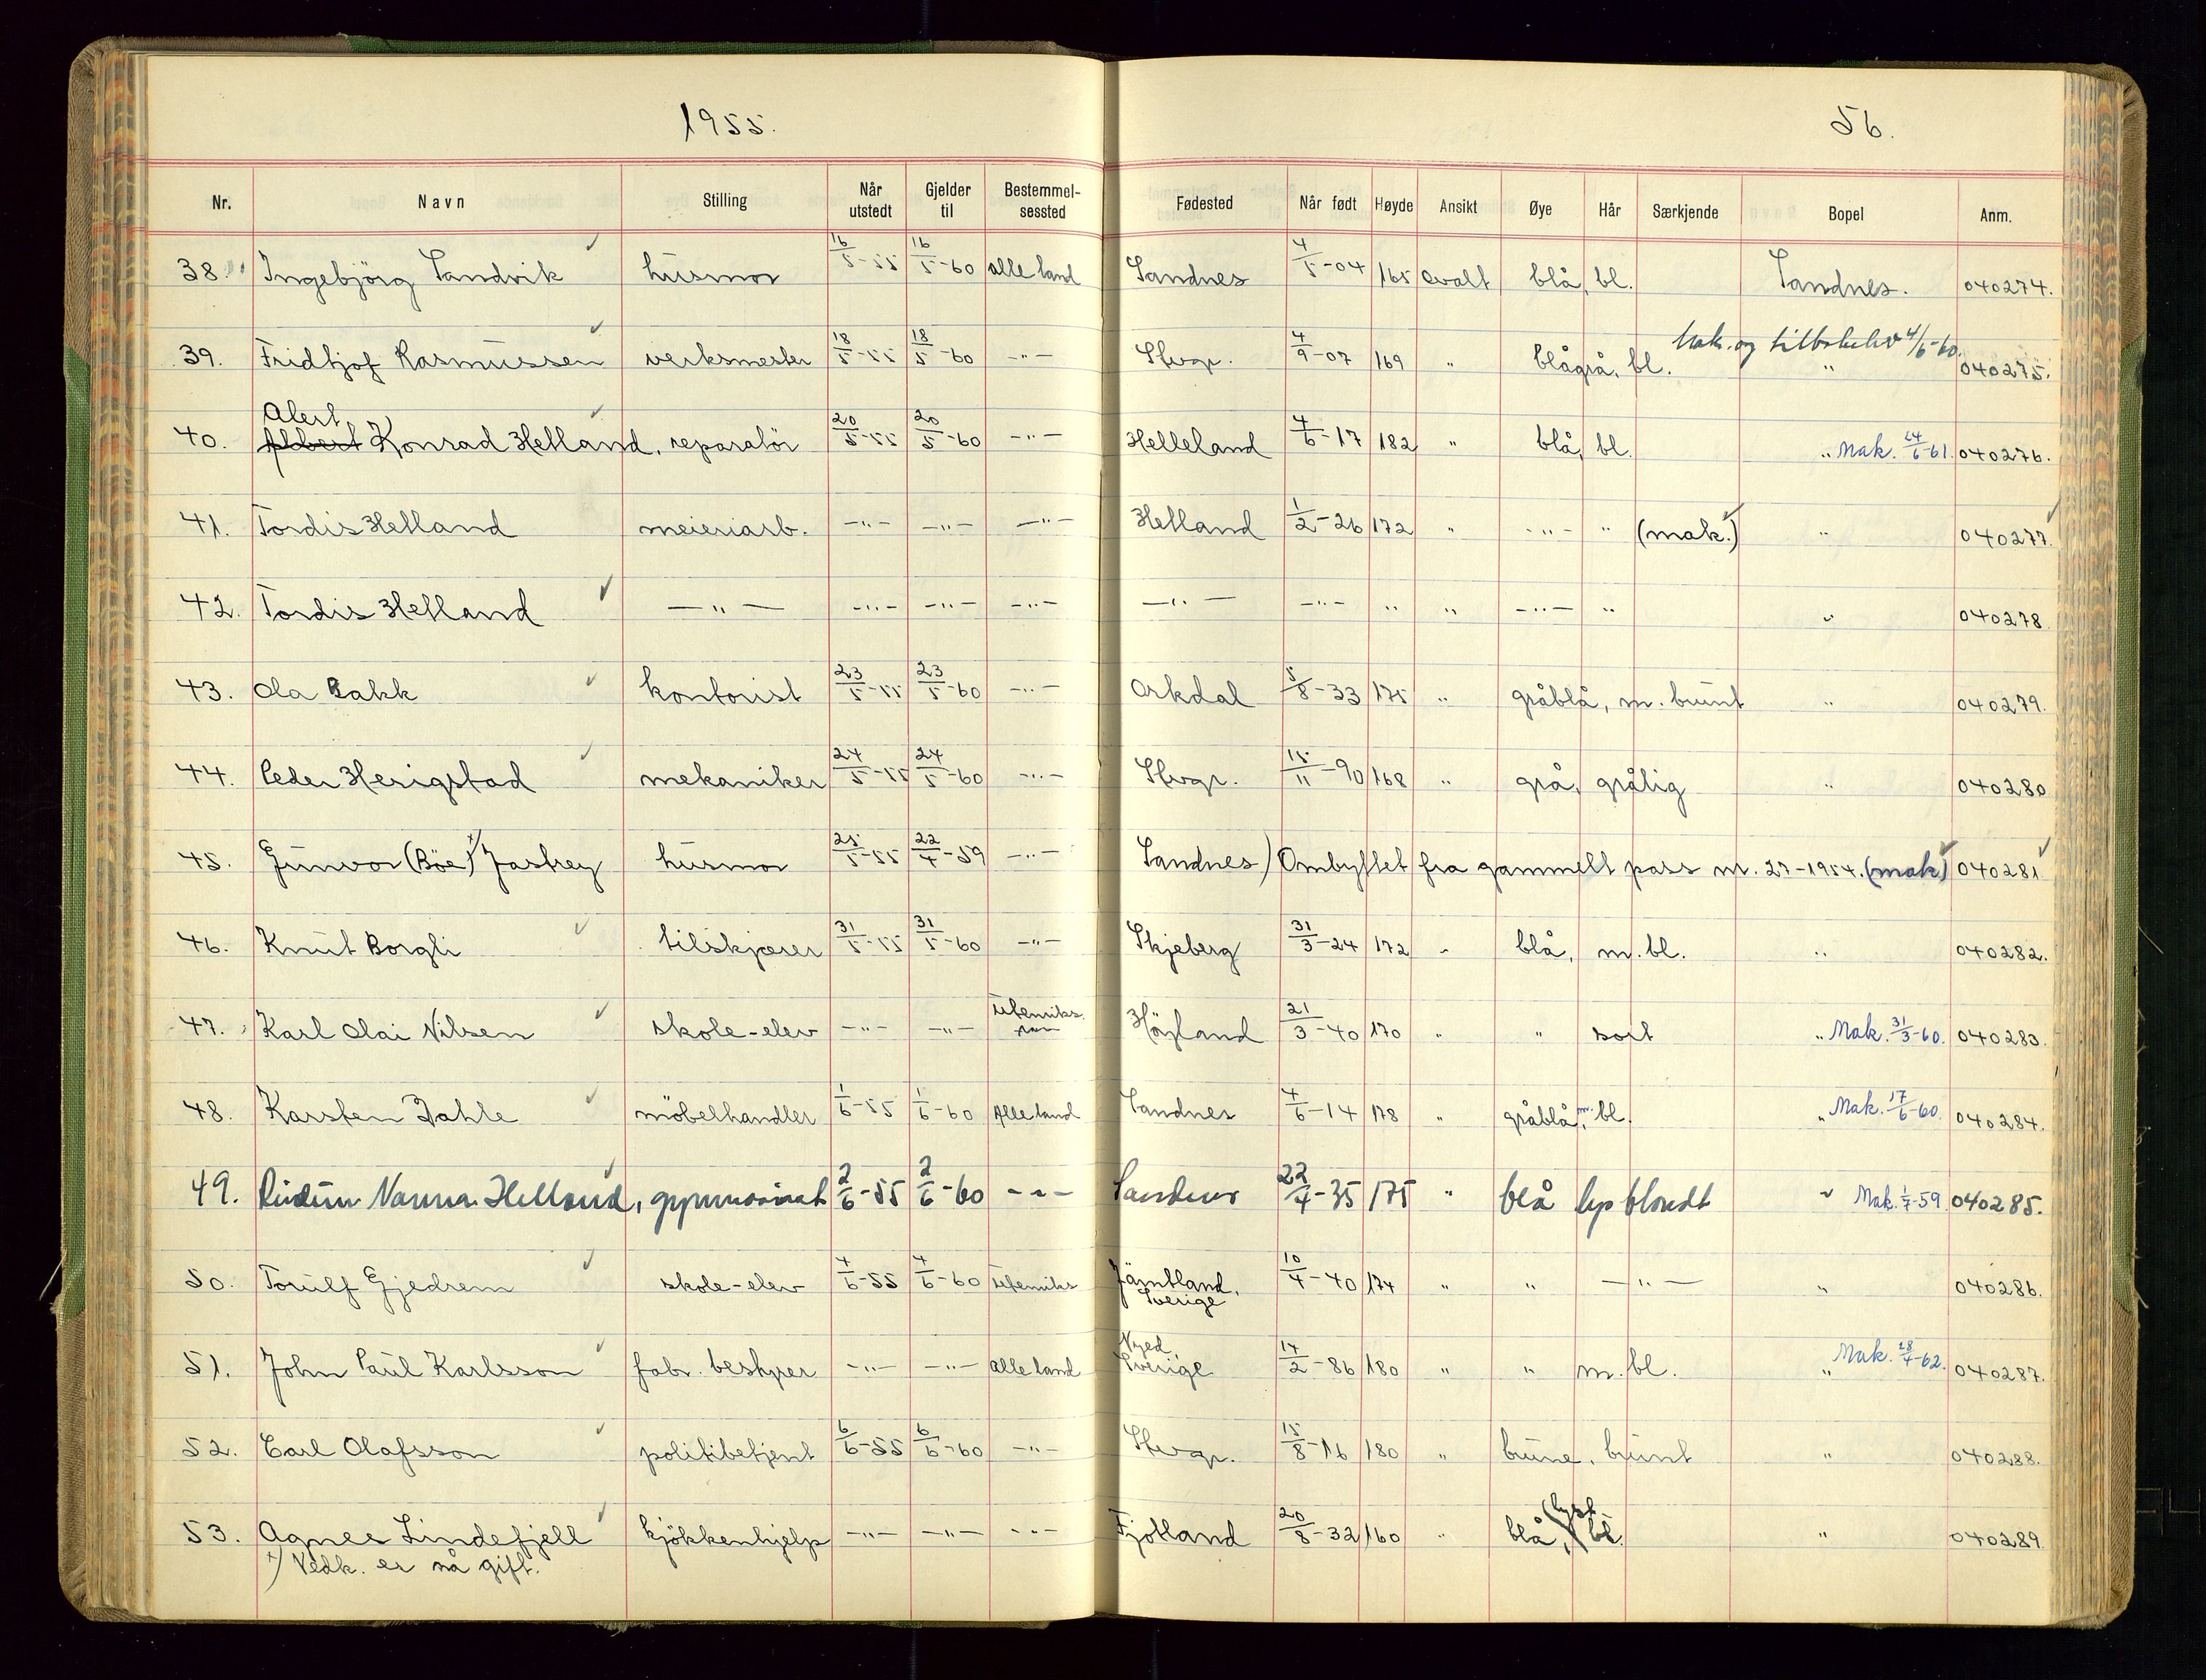 1955.
56.
Nr. Navn Stilling Når utstedt Gjelder til Bestemmelsessted Fødested Når født Høyde Ansikt Øye Hår Særkjende Bopel Anm.
38. Ingebjörg Sandvik husmor 16/5-55 16/5-60 alle land Sandnes 4/5-04 165 ovalt blå, bl. Sandnes. 040274.
39. Fridtjof Rasmussen verksmester 18/5-55 18/5-60 -"- Stvgr. 4/9-07 169 " blågrå, bl. Mak. og tilbakelev 4/6-60. " 040275.
Alert
40. Albert Konrad Helland, reparatör 20/5-55 20/5-60 -"- Helleland 4/6-17 182 " blå, bl. " Mak. 24/6-61. 040276.
41. Tordis Helland meieriarb. -"- -"- -"- Helland 1/2-26 172 " -"- " (mak.) " 040277.
42. Tordis Helland -"- -"- -"- -"- -"- -"- " " -"- " " 040278
43. Ola Bakk kontorist 23/5-55 23/5-60 -"- Orkdal 5/8-33 175 " gråblå, m. brunt " 040279.
44. Peder Herigstad mekaniker 24/5-55 24/5-60 -"- Stvgr. 15/11-90 168 " grå, grålig " 040280
45. Gunvor (Böe)x) Jastrey husmor 25/5-55 22/4-59 -"- Sandnes) Ombyttet fra gammelt pass nr. 27-1954. (mak) 040281
46. Knut Borgli tilskjærer 31/5-55 31/5-60 -"- Skjeberg 31/3-24 172 " blå, m. bl. " 040282.
47. Karl Olai Nilsen skole-elev -"- -"- utenriks. Höyland 21/3-40 170 " " sort " Mak. 31/3-60. 040283.
48. Karsten Dahle möbelhandler 1/6-55 1/6-60 Alle land Sandnes 4/6-14 178 " gråblå, m. bl. " Mak. 17/6-60. 040284.
49. Nanna Helland, gymnasiast 2/6-55 2/6-60 -"- Sandnes 22/4-35 175 " blå lys blondt " Mak. 1/7-59 040285.
50. Torulf Gjedrem skole-elev 4/6-55 4/6-60 utenriks Jämtland, Sverige 10/4-40 174 " " -"- " 040286.
51. John Paul Karlsson fabr. bestyrer -"- -"- alle land Nyed Sverige 14/2-86 180 " " m. bl. " Mak. 28/4-62. 040287.
52. Carl Olafsson politibetjent 6/6-55 6/6-60 -"- Stvgr. 15/8-16 180 " brune, brunt " 040288.
53. Agnes Lindefjell kjökkenhjelp -"- -"- -"- Fjotland 20/8-32 160 " blå, (lyst) bl. " 040289
x) Vedk. er nå gift.